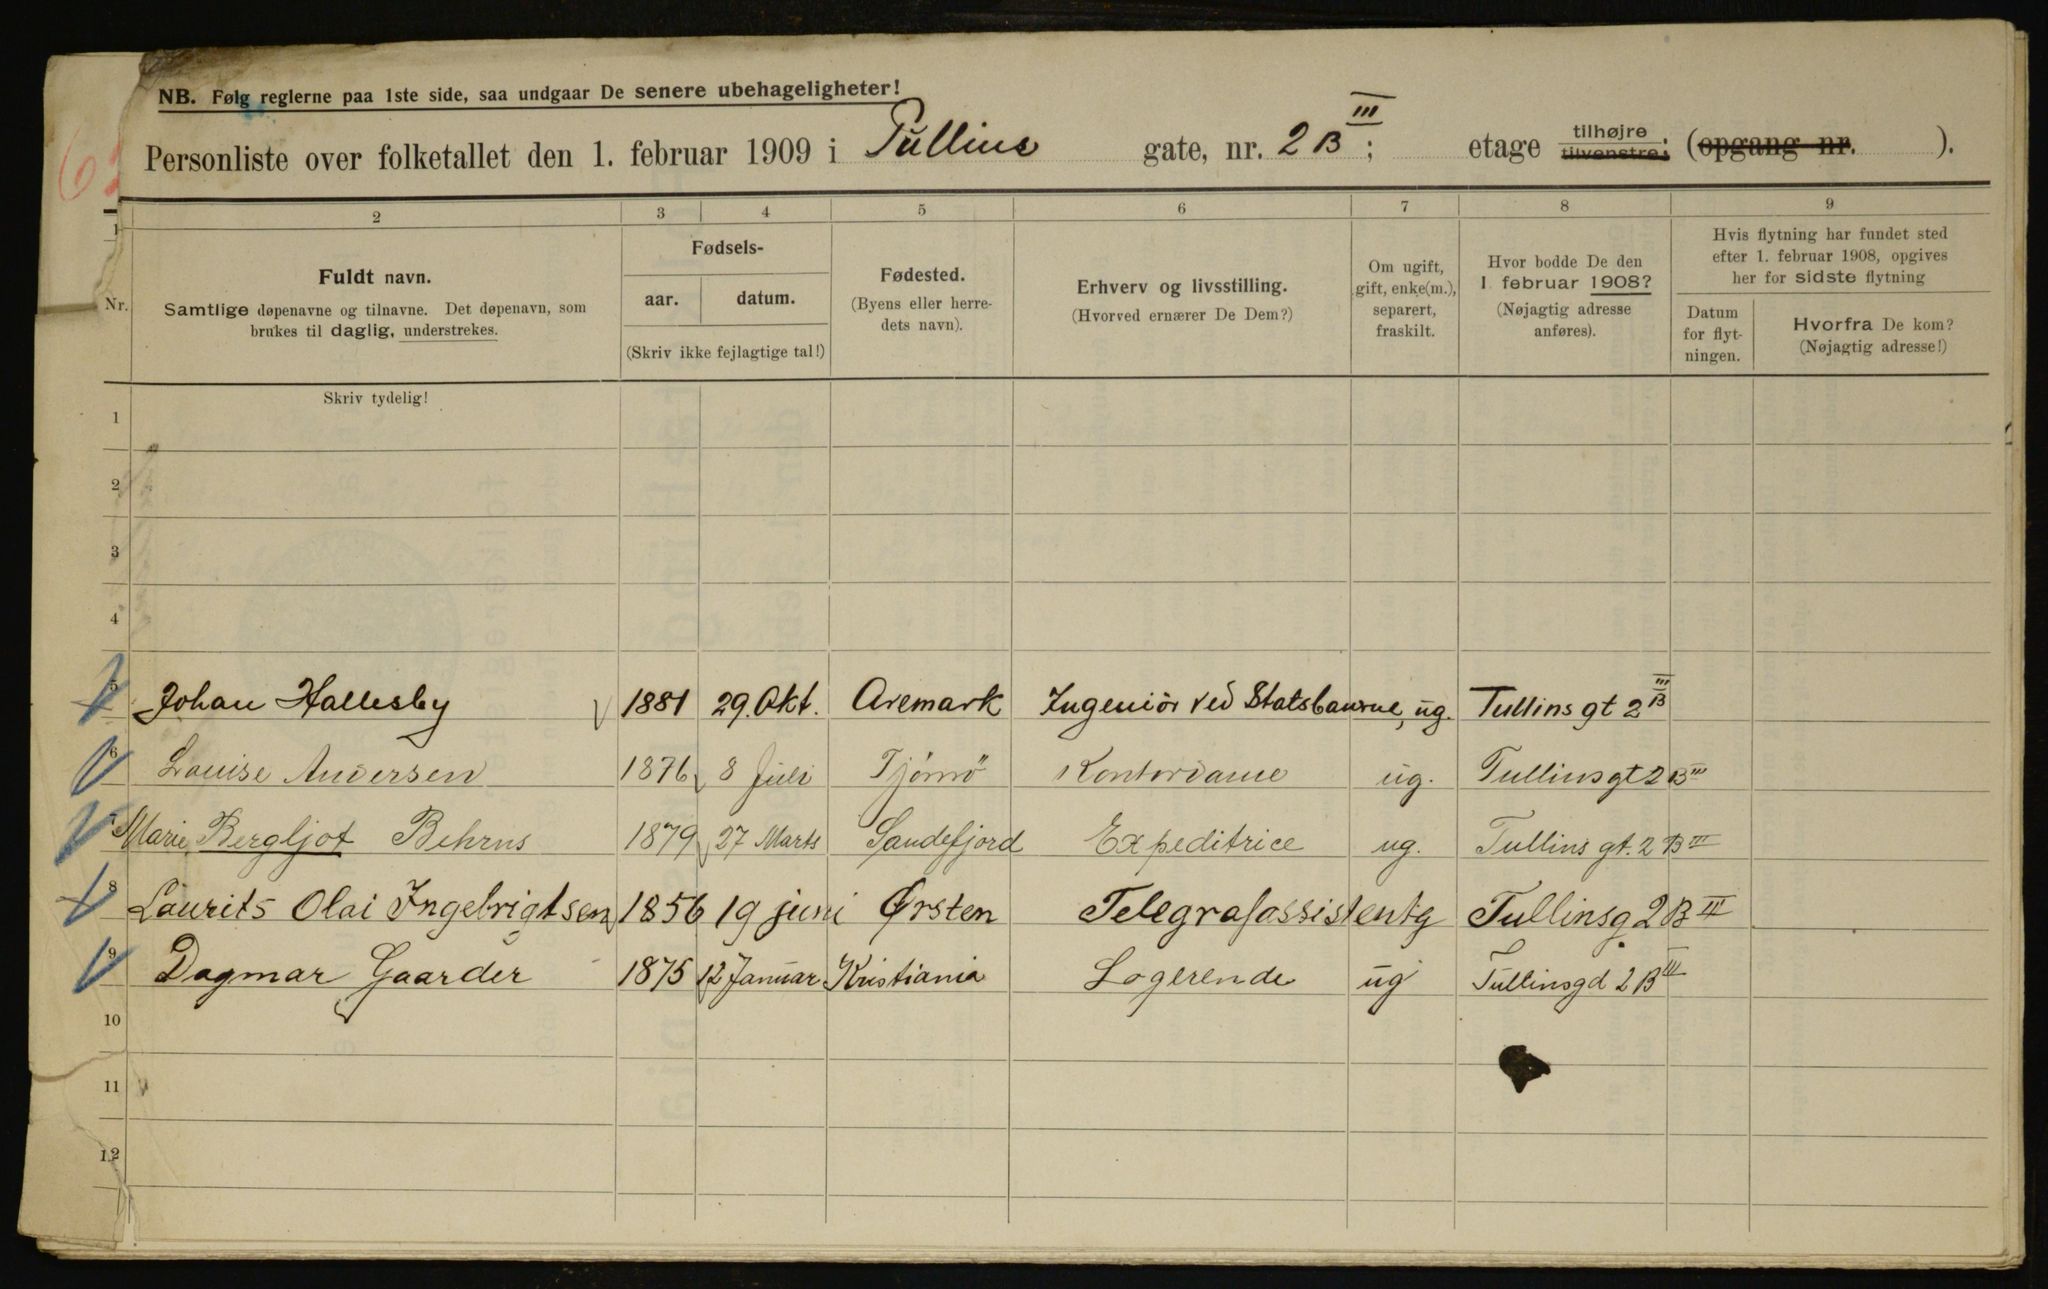 NB. Følg reglerne paa 1ste side, saa undgaar De senere ubehageligheter!
Personliste over folketallet den 1. februar 1909 i Tullins gate, nr. 2 B III; etage tilhøjre tilvenstre; (opgang nr. ).
1 2 3 4 5 6 7 8 9
Nr.
Fuldt navn.
Samtlige døpenavne og tilnavne. Det døpenavn, som
brukes til daglig, understrekes.
Fødsels-
aar. datum.
(Skriv ikke fejlagtige tal!)
Fødested.
(Byens eller herre-
dets navn).
Erhverv og livsstilling.
(Hvorved ernærer De Dem?)
Om ugift,
gift, enke(m.),
separert,
fraskilt.
Hvor bodde De den
1. februar 1908?
(Nøjagtig adresse
anføres).
Hvis flytning har fundet sted
efter 1. februar 1908, opgives
her for sidste flytning
Datum
for flyt-
ningen.
Hvorfra De kom?
(Nøjagtig adresse!)
Skriv tydelig!
1
2
3
4
5 Johan Hallesby 1881 29. Okt. Aremark Ingeniör ved Statsbanerne, ug. Tullins gt 2 B III
6 Louise Andersen 1876 8 Juli Tjömö Kontordame ug. Tullinsgt 2 B III
7 Marie Bergljot Behrns 1879 27 Marts Sandefjord Expeditrice ug. Tullins gt. 2 B III
8 Laurits Olai Ingebrigtsen 1856 19 juni Ørsten Telegrafassistent ug Tullinsg 2 B III
9 Dagmar Gaarder 1875 12 Januar Kristiania Logerende ug Tullinsgd 2 B III
10
11
12